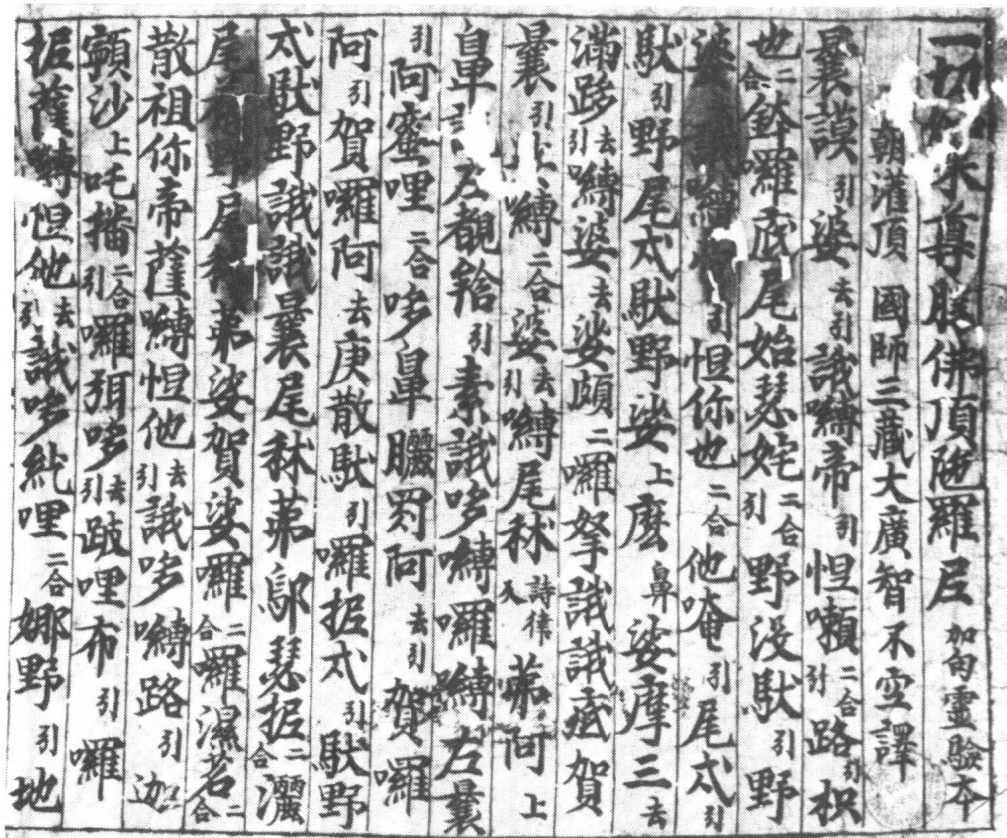 一切如来尊勝佛頂陁羅尼 加句靈驗本
朝灌頂 國師三藏大廣智不空譯
曩謨引婆去引誐嚩帝引怛𡃤二合路引枳
也二合鉢囉底尾始瑟姹二合引野没馱引野
引怛你也二合他唵引尾戍引
馱引野尾戍馱野娑上麽鼻娑摩三去
滿跢去引嚩婆去娑頗二囉拏誐誐底賀
曩引嚩二合婆去引嚩尾秫詩律入弟阿上
鼻左覩引素誐哆嚩囉嚩左曩
引阿蜜哩二合哆鼻曬罽阿去引賀囉
阿引賀囉阿去庾散馱引囉抳戍引馱野
戍馱野誐誐曩尾秫弟鄔瑟抳二合灑
尾尾秫弟娑賀娑囉二合囉濕茗二合
散祖你帝薩嚩怛他去引誐哆嚩路引迦
顊沙上吒播二合引囉弭哆去引跛哩布引囉
抳薩嚩怛他去引誐哆紇哩二合娜野引地